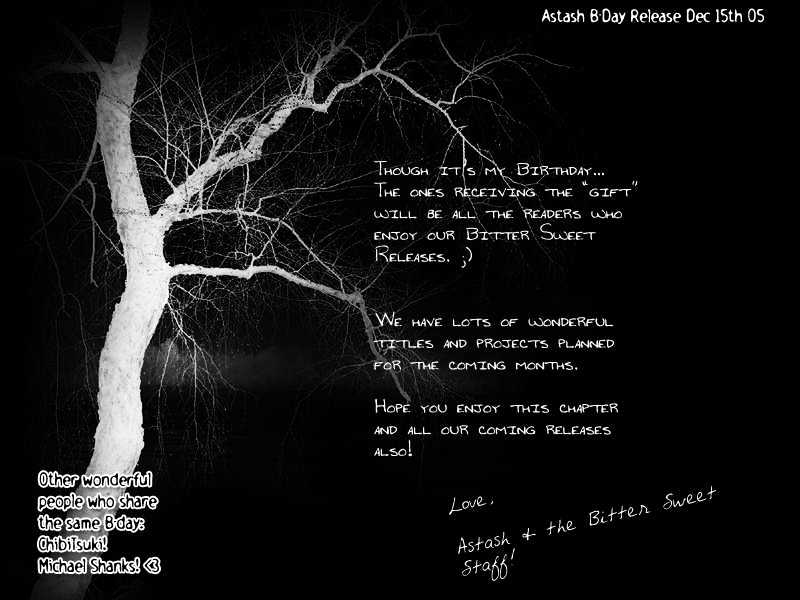 Astash B-Day Release Dec 15th 05
Though it's my Birthday...
The ones receiving the "gift"
will be all the readers who
enjoy our Bitter Sweet
Releases. ;)
We have lots of wonderful
titles and projects planned
for the coming months.
Hope you enjoy this chapter
and all our coming releases
also!
Love,
Astash & the Bitter Sweet
Staff!
Other wonderful
people who share
the same B-day:
ChibiTsuki!
Michael Shanks! <3